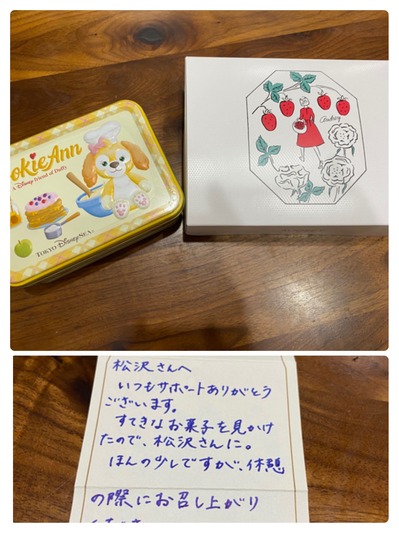 CookieAnn
A Disney Friend of Duffy
TOKYO DisneySEA
Audrey
松沢さんへ
いつもサポートありがとう
ございます。
すてきなお菓子を見かけ
たので、松沢さんに。
ほんの少しですが、休憩
の際にお召し上がり